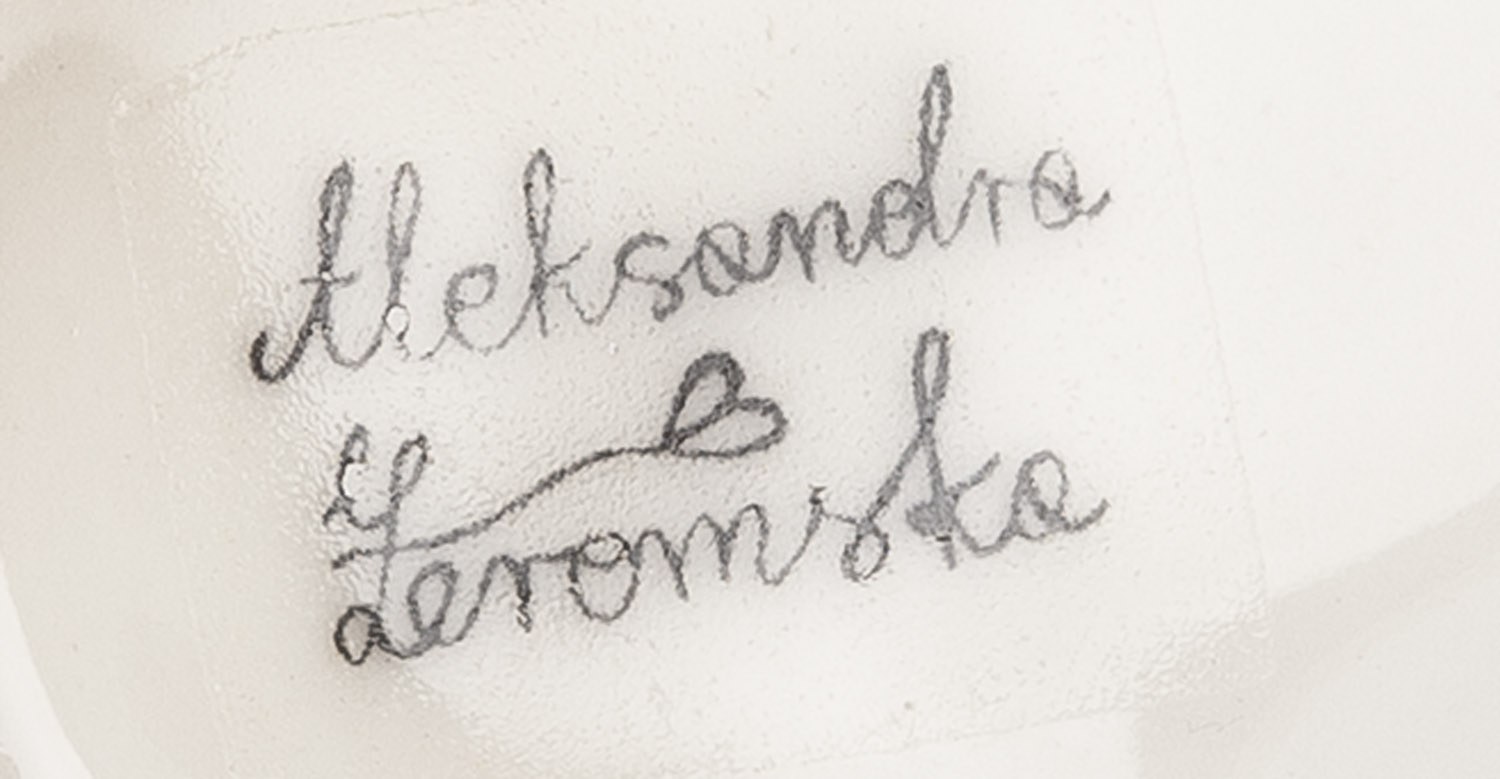 Aleksandra
Żeromska